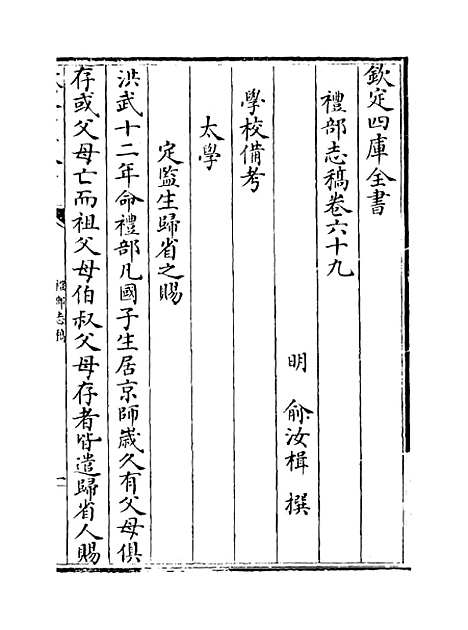 欽定四庫全書
禮部志稿卷六十九
明 俞汝楫 撰
學校備考
太學
定監生歸省之賜
洪武十二年命禮部凡國子生居京師歲久有父母俱
存或父母亡而祖父母伯叔父母存者皆遣歸省人賜
禮部志稿
一